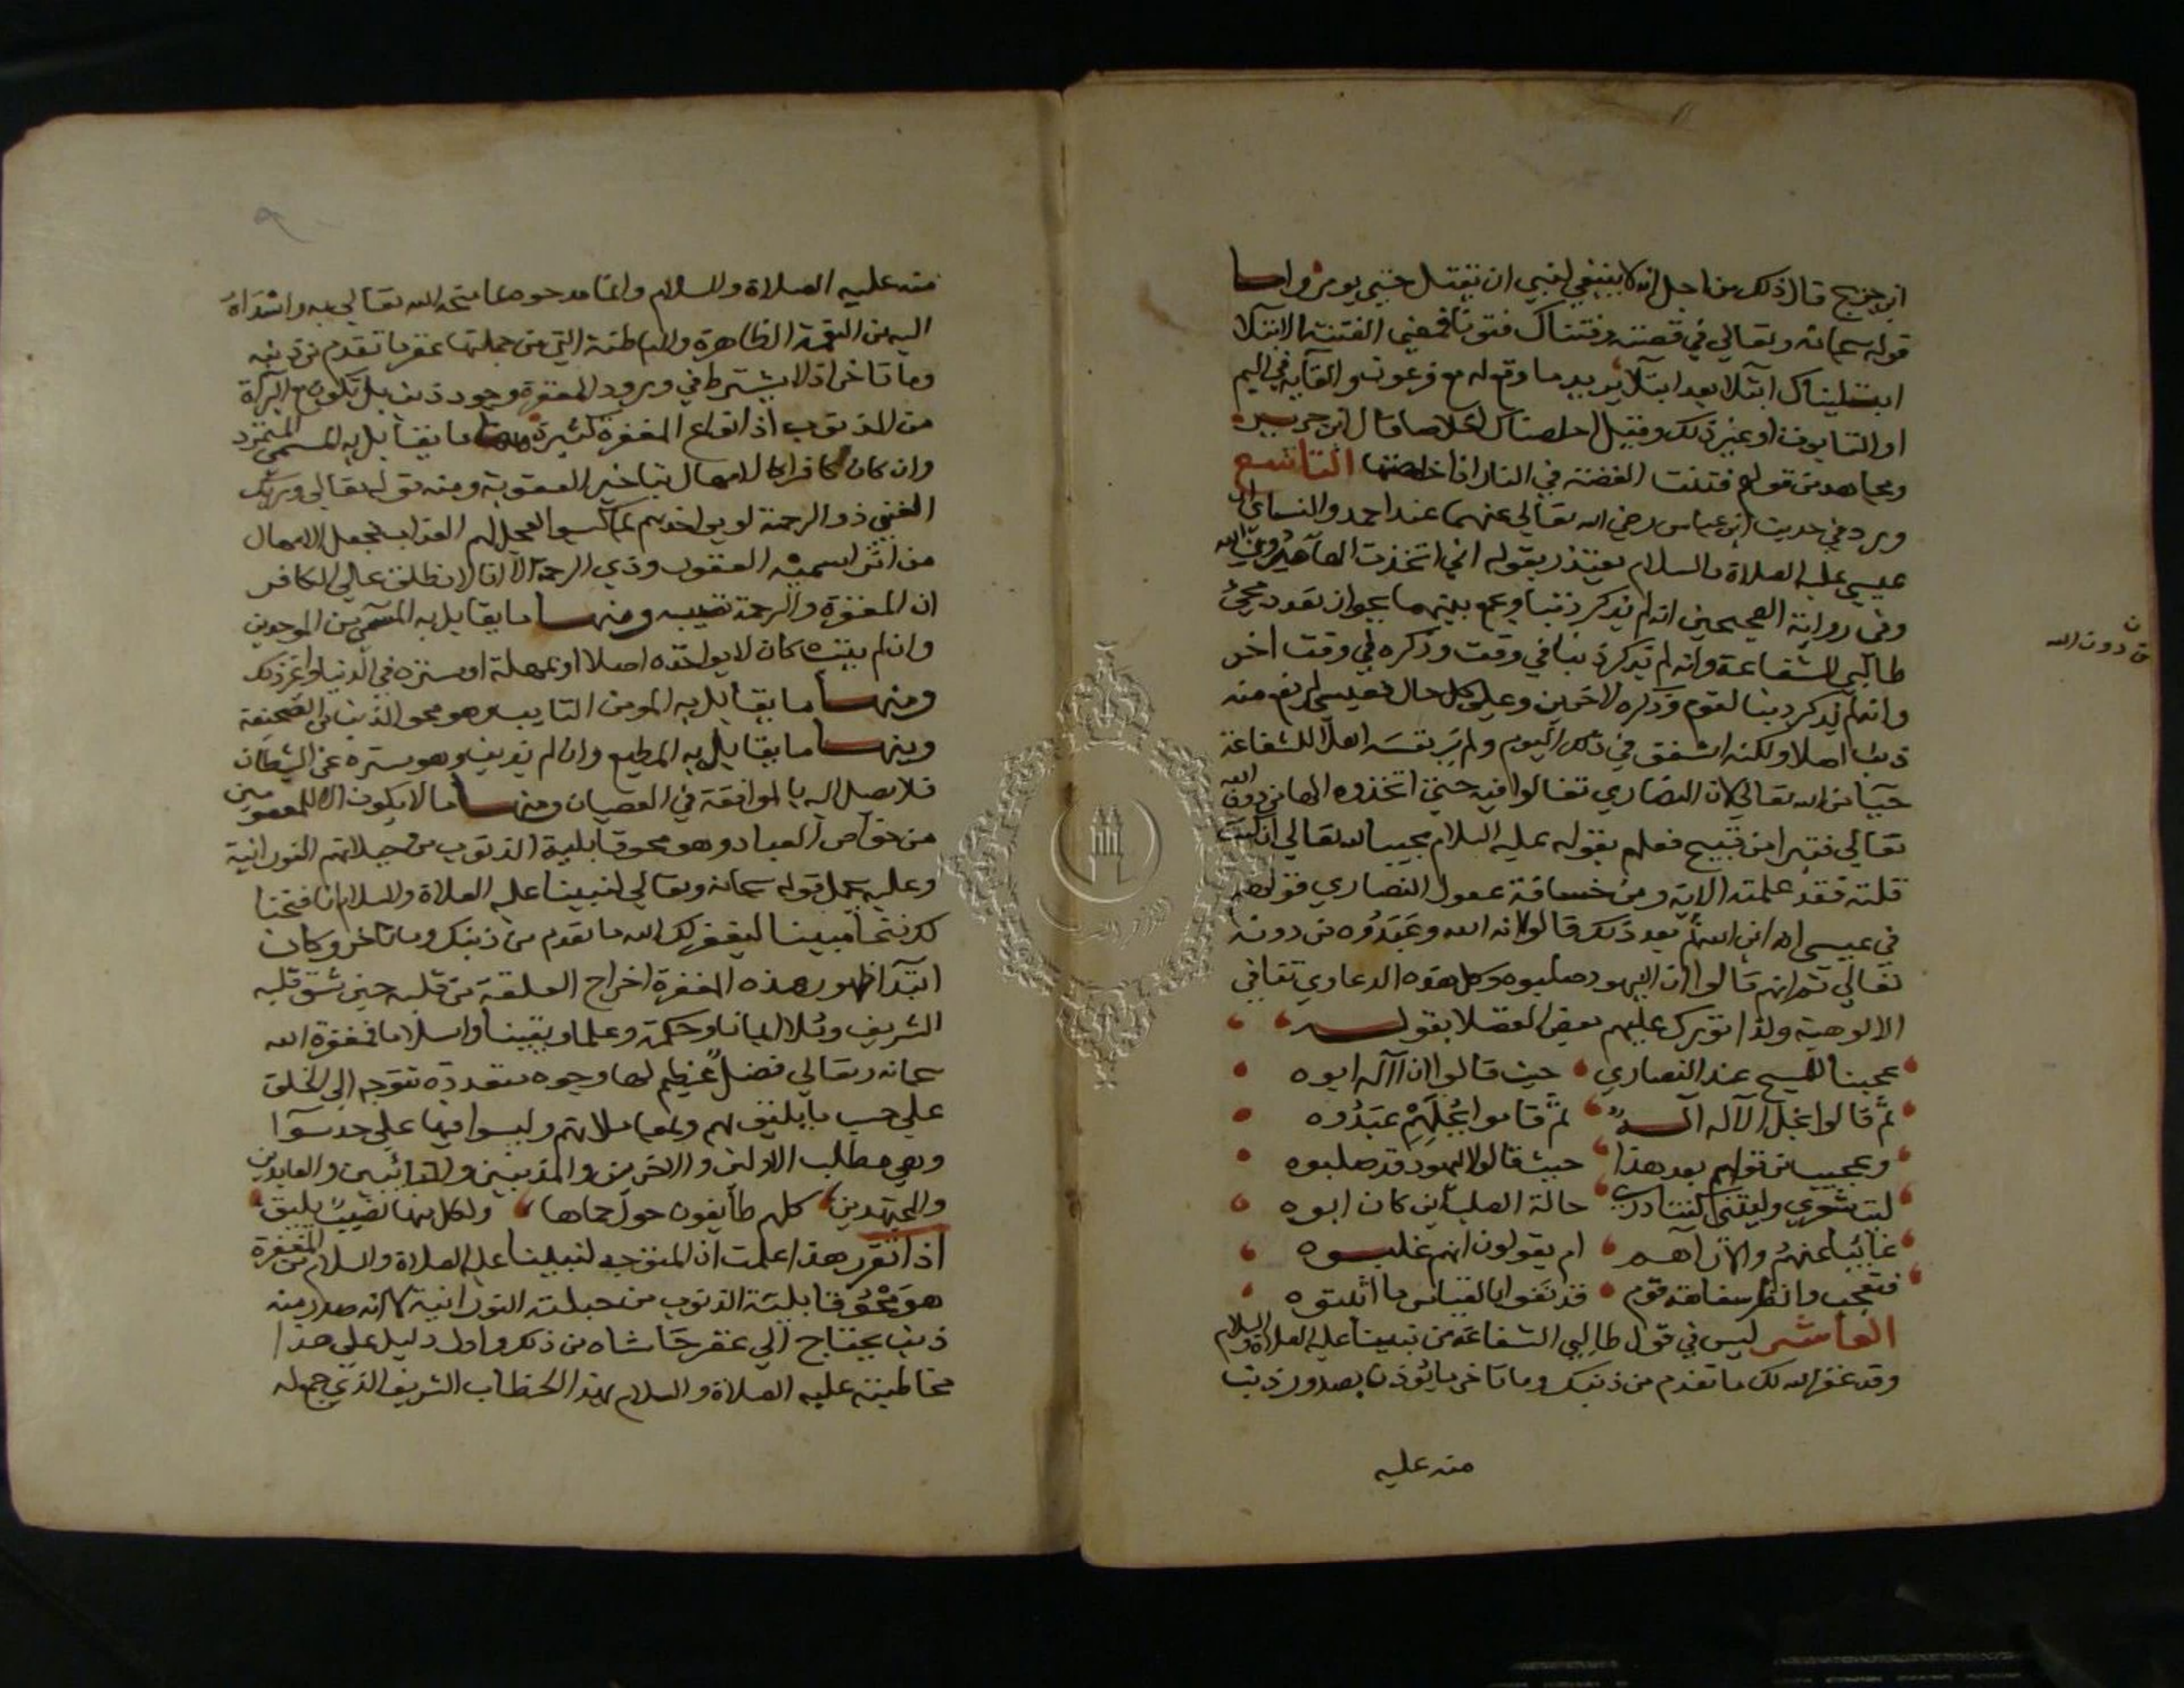 ابن جريج قال ذلك من اجل انه لا ينبغي لنبي ان يقتل حتي يومر واما
قوله سبحانه وتعالي في قصته وفتناك فتونا فمعني الفتنة الابتلا
ابتليناك ابتلا بعد ابتلا يريد ما وقع له مع فرعون والقايه في اليم
او التابوت او غير ذلك وقيل اخلصناك اخلاصا قال ابن جبير
ومجاهد من قولهم فتنت الفضة في النار اذا خلصتها التاسع
ورد في حديث ابن عباس رضي الله تعالي عنهما عند احمد والنسائي ان
عيسي عليه الصلاة والسلام يعتذر بقوله اني اتخذت الها من دون الله
وفي رواية الصحيحين انه لم يذكر ذنبا وجمع بينهما بجواز تعدد مجيئ
طالبي الشفاعة وانه لم يذكر ذنبا في وقت وذكره في وقت اخر
وانه لم يذكر ذنبا لقوم وذكره لاخرين وعلي كل حال فعيسي لم يقع منه
ذنب اصلا ولكنه اشفق في ذلك اليوم ولم ير نفسه اهلا للشفاعة
حيا من الله تعالي لان النصاري تغالوا فيه حتي اتخذوه الها من دون الله
تعالي فتبرا من قبيح فعلهم بقوله عليه السلام مجيبا لله تعالي ان كنت
قلته فقد علمته الاية ومن خسافة عقول النصاري قولهم
في عيسي انه ابن الله ثم بعد ذلك قالوا انه الله وعبدوه من دونه
تعالي ثم انهم قالوا ان اليهود صلبوه وكل هذه الدعاوي تنافي
الالوهية ولذا تورك عليهم بعض الفضلا بقوله
عجبنا للمسيح عند النصاري حيث قالوا ان الاله ابوه
ثم قالوا نجل الاله اله ثم قاموا بجهلهم عبدوه
وعجيب من قولهم بعد هذا حيث قالوا اليهود قد صلبوه
ليت شعري وليتني كنت ادري حالة الصلب اين كان ابوه
غائبا عنهم والا تراهم ام يقولون انهم غلبوه
فتعجب وانظر سفاهة قوم قد نفوا بالقياس ما اثبتوه
العاشر ليس في قول طالبي الشفاعة من نبينا عليه الصلاة والسلام
وقد غفر الله لك ما تقدم من ذنبك وما تاخر ما يؤذن بصدور ذنب
منه عليه
من دون الله
منه عليه الصلاة والسلام وانما هو مما منحه الله تعالي به واسداه
اليه من النعمة الظاهرة والباطنة التي من جملتها غفر ما تقدم من ذنبه
وما تاخر اذ لا يشترط في ورود المغفرة وجود ذنب بل تكون مع البراة
من الذنوب اذ انواع المغفرة كثيرة منها ما يقابل به المسمي المتمرد
وان كان كافرا كالامهال بتاخير العقوبة ومنه قوله تعالي وربك
الغني ذو الرحمة لو يواخذهم بما كسبوا لعجل لهم العذاب فجعل الامهال
من اثر اسميه الغفور وذي الرحمة الا انا لا نطلق علي الكافر
ان المغفرة والرحمة تصيبه ومنها ما يقابل به المسمي من الموحدين
وان لم يتب كان لا يواخذه اصلا او يمهله او يستره في الدنيا او غير ذلك
ومنها ما يقابل به المومن التايب وهو محو الذنب من الصحيفة
ومنها ما يقابل به المطيع وان لم يذنب وهو ستره عن الشيطان
فلا يصل اليه بالموافقة في العصيان ومنها ما لا يكون الا للمعصومين
من خواص العباد وهو محو قابلية الذنوب من جبلاتهم النورانية
وعليه يحمل قوله سبحانه وتعالي لنبينا عليه الصلاة والسلام انا فتحنا
لك فتحا مبينا ليغفر لك الله ما تقدم من ذنبك وما تاخر وكان
ابتدا ظهور هذه المغفرة اخراج العلقة من قلبه حين شق قلبه
الشريف وملا ايمانا وحكمة وعلما ويقينا واسلاما فمغفرة الله
سبحانه وتعالي فضل عظيم لها وجوه متعددة تتوجه الي الخلق
علي حسب ما يليق بهم وبمعاملاتهم وليسوا فيها علي حد سوا
وهي مطلب الاولين والاخرين والمذنبين والتائبين والعابدين
والمجتهدين كلهم طايفون حول حماها ولكل منها نصيب يليق
اذا تقرر هذا علمت ان المتوجه لنبينا عليه الصلاة والسلام من المغفرة
هو محو قابلية الذنوب من جبلته النورانية لا انه صدر منه
ذنب يحتاج الي غفر حاشاه من ذلك واول دليل علي هذا
مخاطبته عليه الصلاة والسلام بهذا الخطاب الشريف الذي جمله